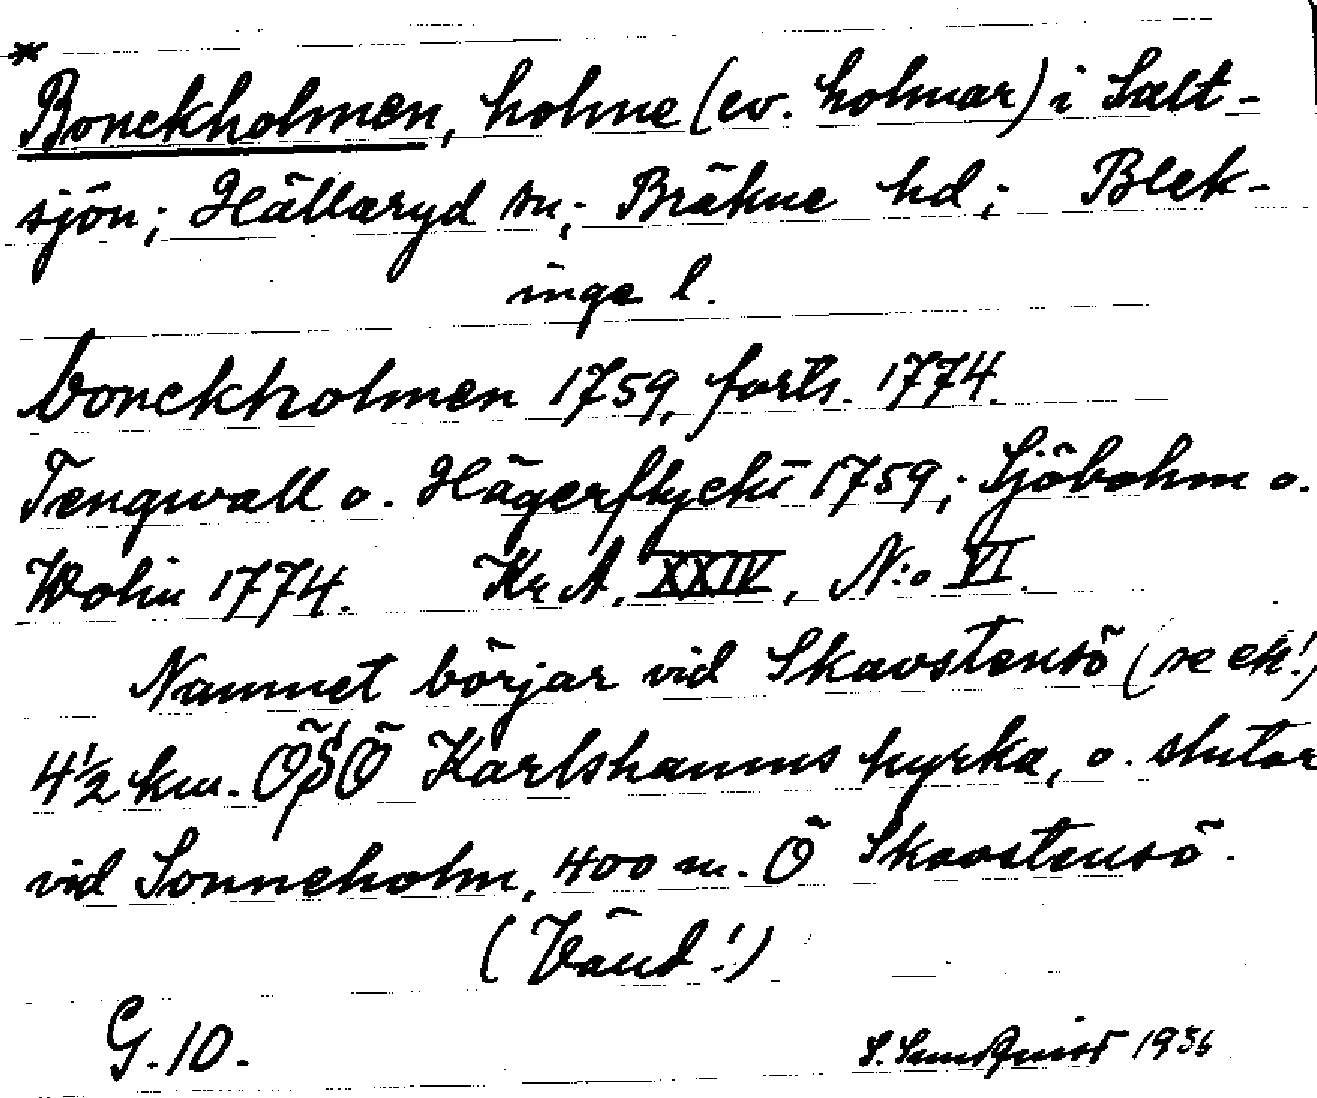 *
Bonckholmen, holme (ev. holmar) i Salt-
sjön; Hällaryd sn; Bräkne hd; Blek-
inge l.
bonckholmen 1759, forts. 1774.
Tengwall o. Hägerflyckt 1759; Sjöbohm o.
Wolin 1774. Kr A. XXIV, N:o VI.
Namnet börjar vid Skavstensö (se ek!)
4 1/2 km. ÖSÖ Karlshamns kyrka, o. slutar
vid Sonneholm, 400 m. Ö Skavstensö.
(Vänd!)
G. 10.
S. Sundquist 1936